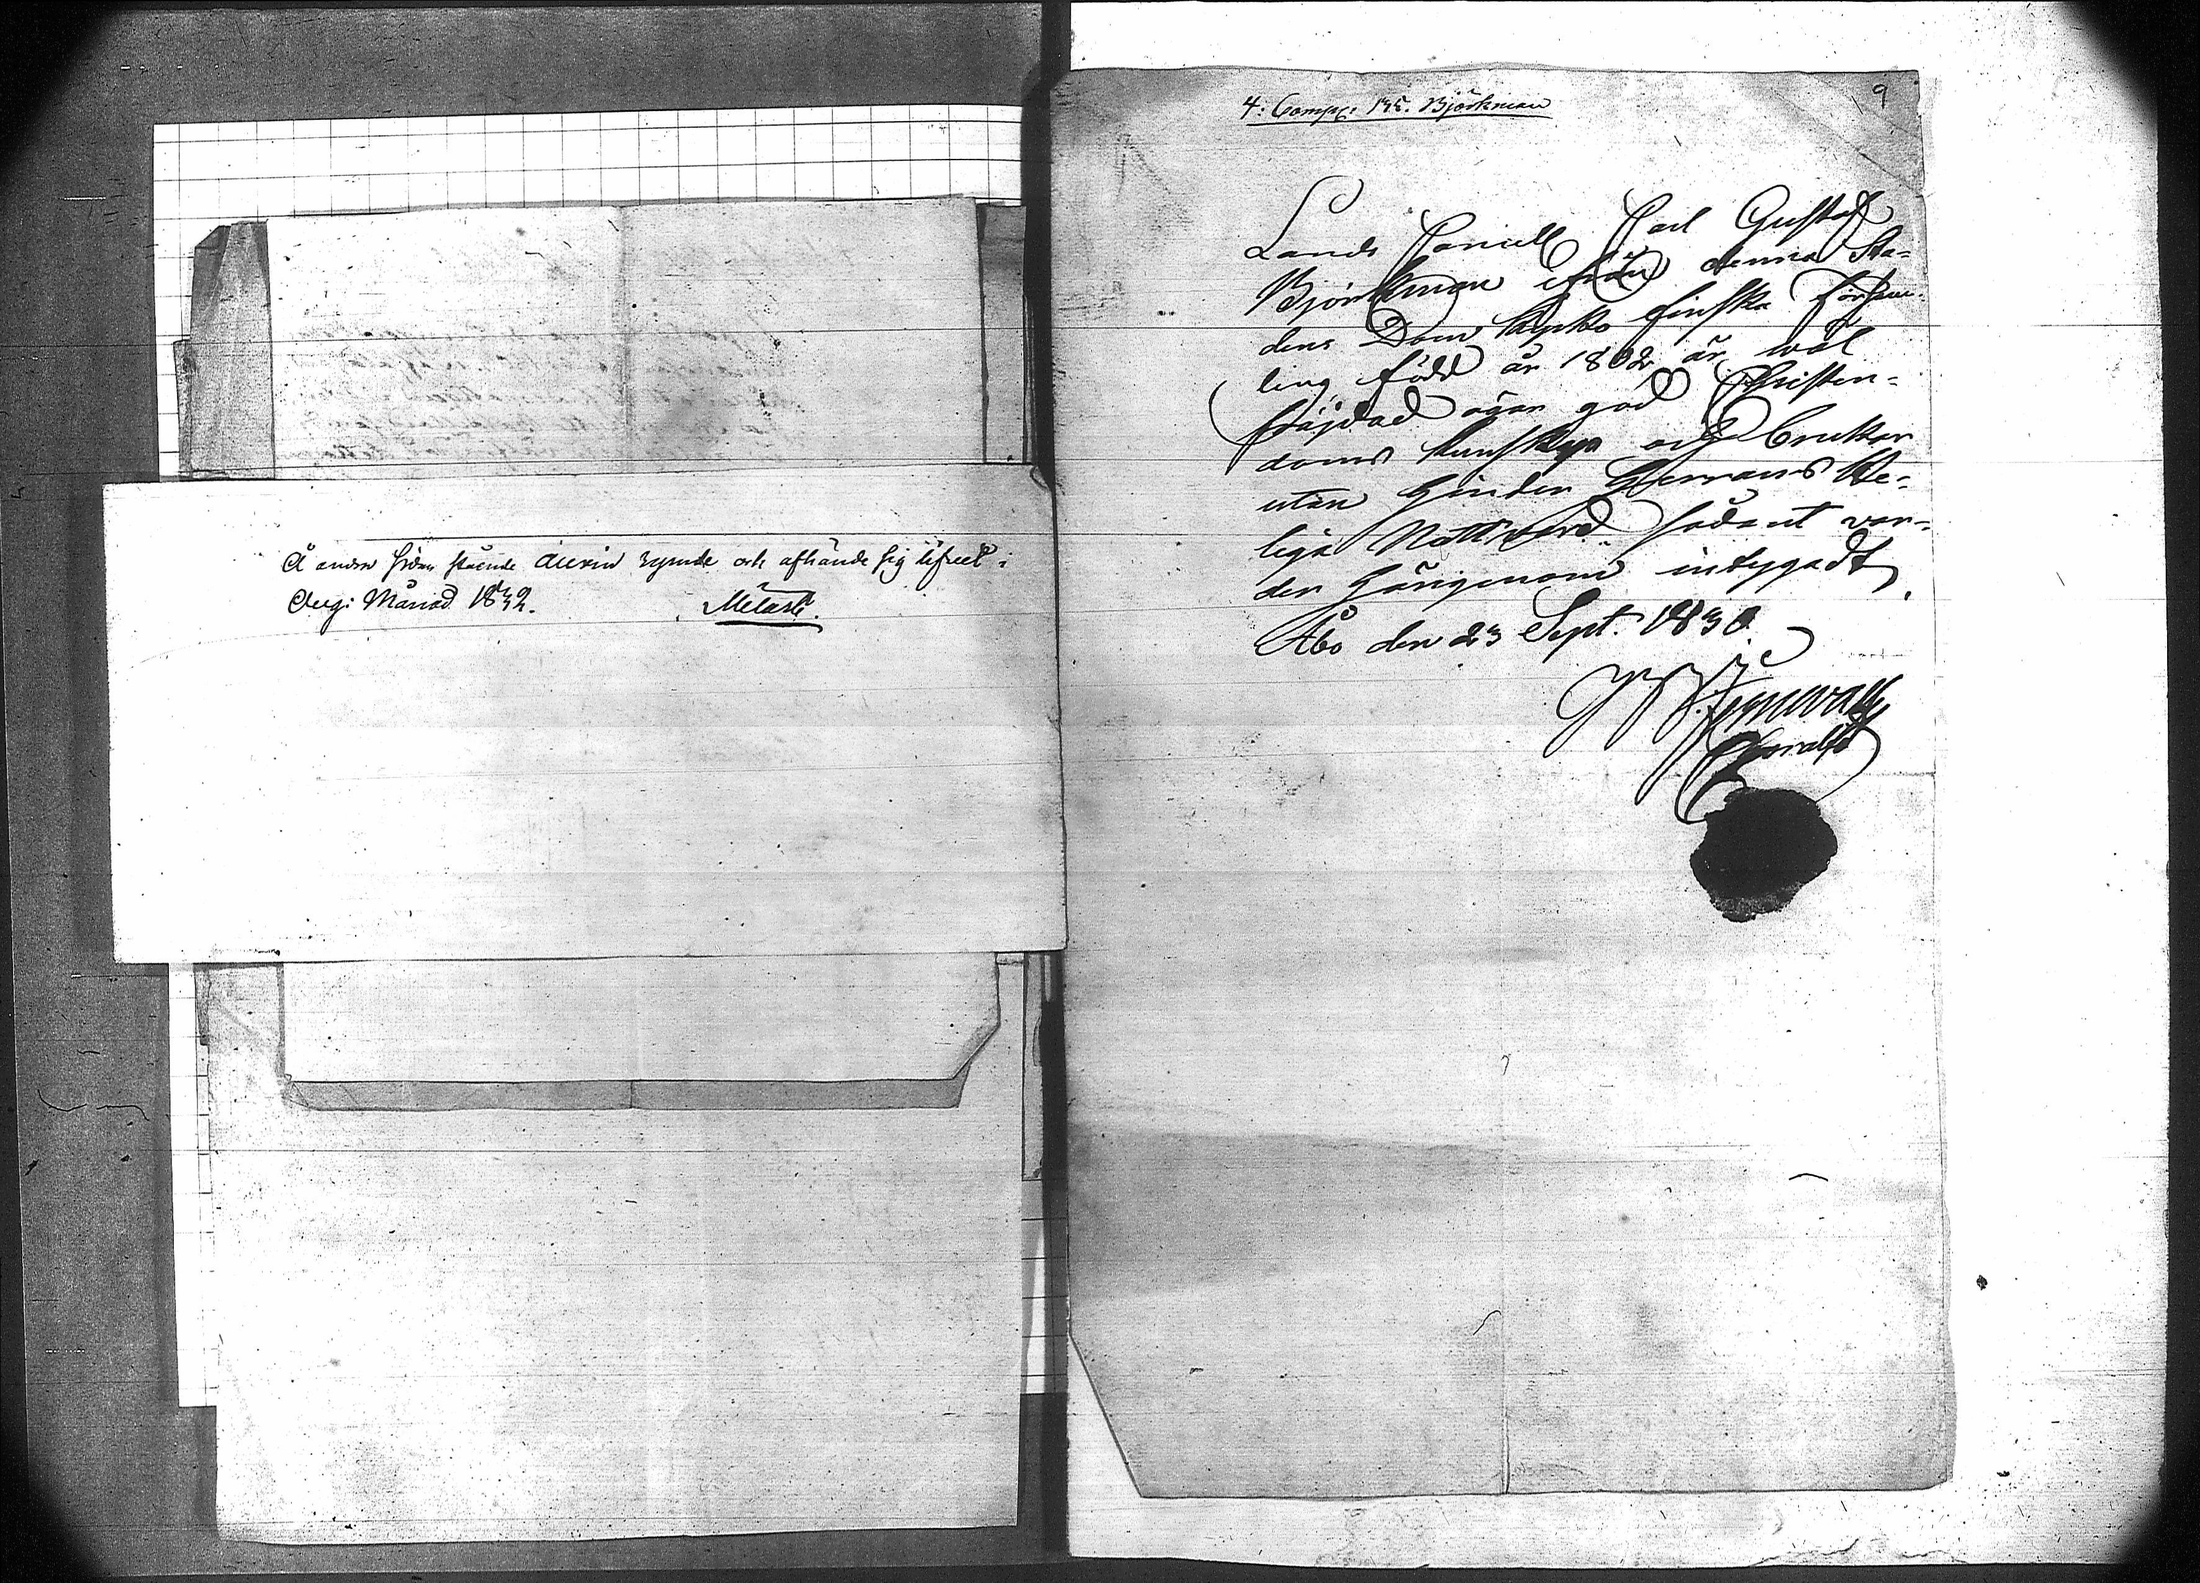 Å andra sidan stående Aurin rymde och afhände sig lifvet i
Aug: Månad 1832.
4: Comp: 195. Björkman
9
Lands Cancell Carl Gustaf
Björkman ifrån denna Sta-
dens Dom kyrko finska Försam-
ling, född år 1802, är wäl
fräjdad äger god Christen-
doms kunskap och brukar
utan hinder Herrans He-
liga Nattward. Sådant war-
der härigenom intygadt,
Åbo den 23 Sept. 1830.